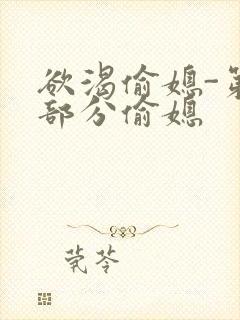 欲渴偷媳-第
部分偷媳
茕苓